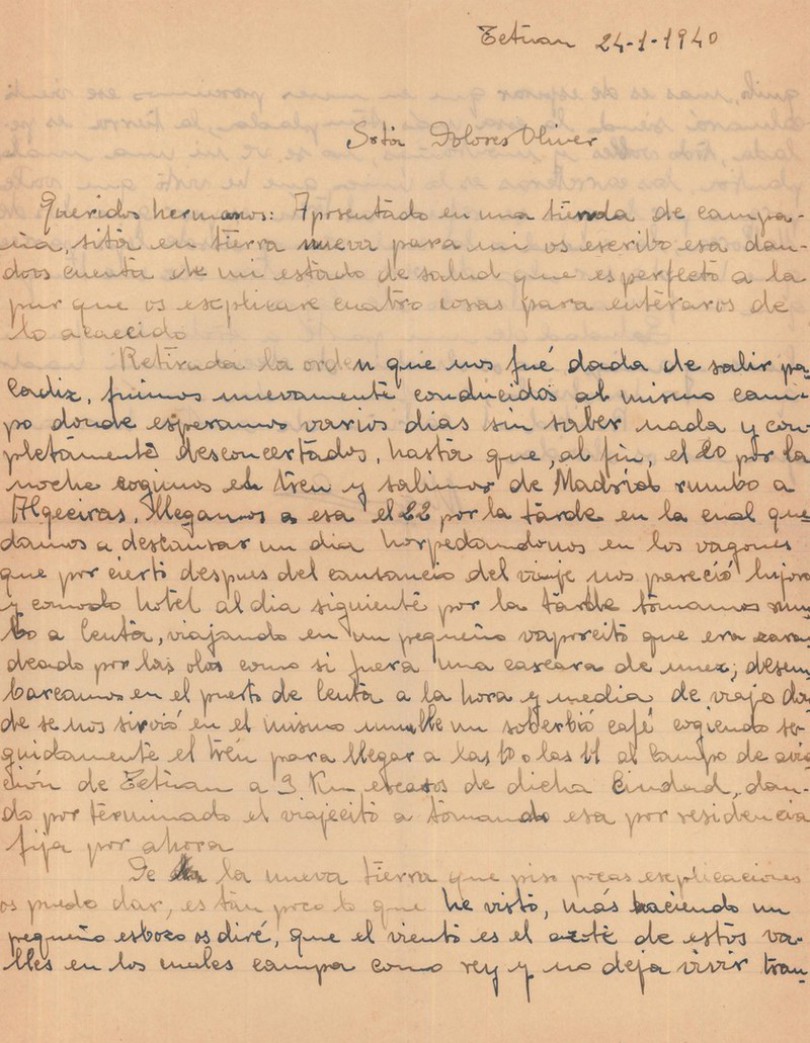 Tetuan 24-1-1940
Srta Dolores Oliver
Queridos hermanos: Aposentado en una tienda de campa-
ña, sita en tierra nueva para mi os escribo esa dan-
doos cuenta de mi estado de salud que es perfecto a la
par que os esplicare cuatro cosas para enteraros de
lo acaecido
Retirada la orden que nos fué dada de salir pa
Cadiz, fuimos nuevamente conducidos al mismo cam-
po donde esperamos varios dias sin saber nada y com
pletamente desconcertados, hasta que, al fin, el 20 por la
noche cogimos el tren y salimos de Madrid rumbo a
Algeciras. Llegamos a esa el 22 por la tarde en la cual que
damos a descansar un dia horpedandonos en los vagones
que por cierto despues del cansancio del viaje nos pareció lujoso
y comodo hotel al dia siguiente por la tarde tomamos rum
bo a Ceuta, viajando en un pequeño vaporcito que era zaran
deado por las olas como si fuera una cascara de nuez; desem
barcamos en el puerto de Ceuta a la hora y media de viaje don
de se nos sirvió en el mismo muelle un soberbió café cogiendo se-
guidamente el trén para llegar a las 10 o las 11 al Campo de avia
ción de Tetuan a 9 Km escasos de dicha Ciudad, dan-
do por terminado el viajecito a tomando esa por residencia
fija por ahora
De la nueva tierra que piso pocas esplicaciones
os puedo dar, es tan poco lo que he visto, más haciendo un
pequeño esbozo os diré, que el viento es el azote de estos va-
lles en los cuales campa como rey y no deja vivir tran-